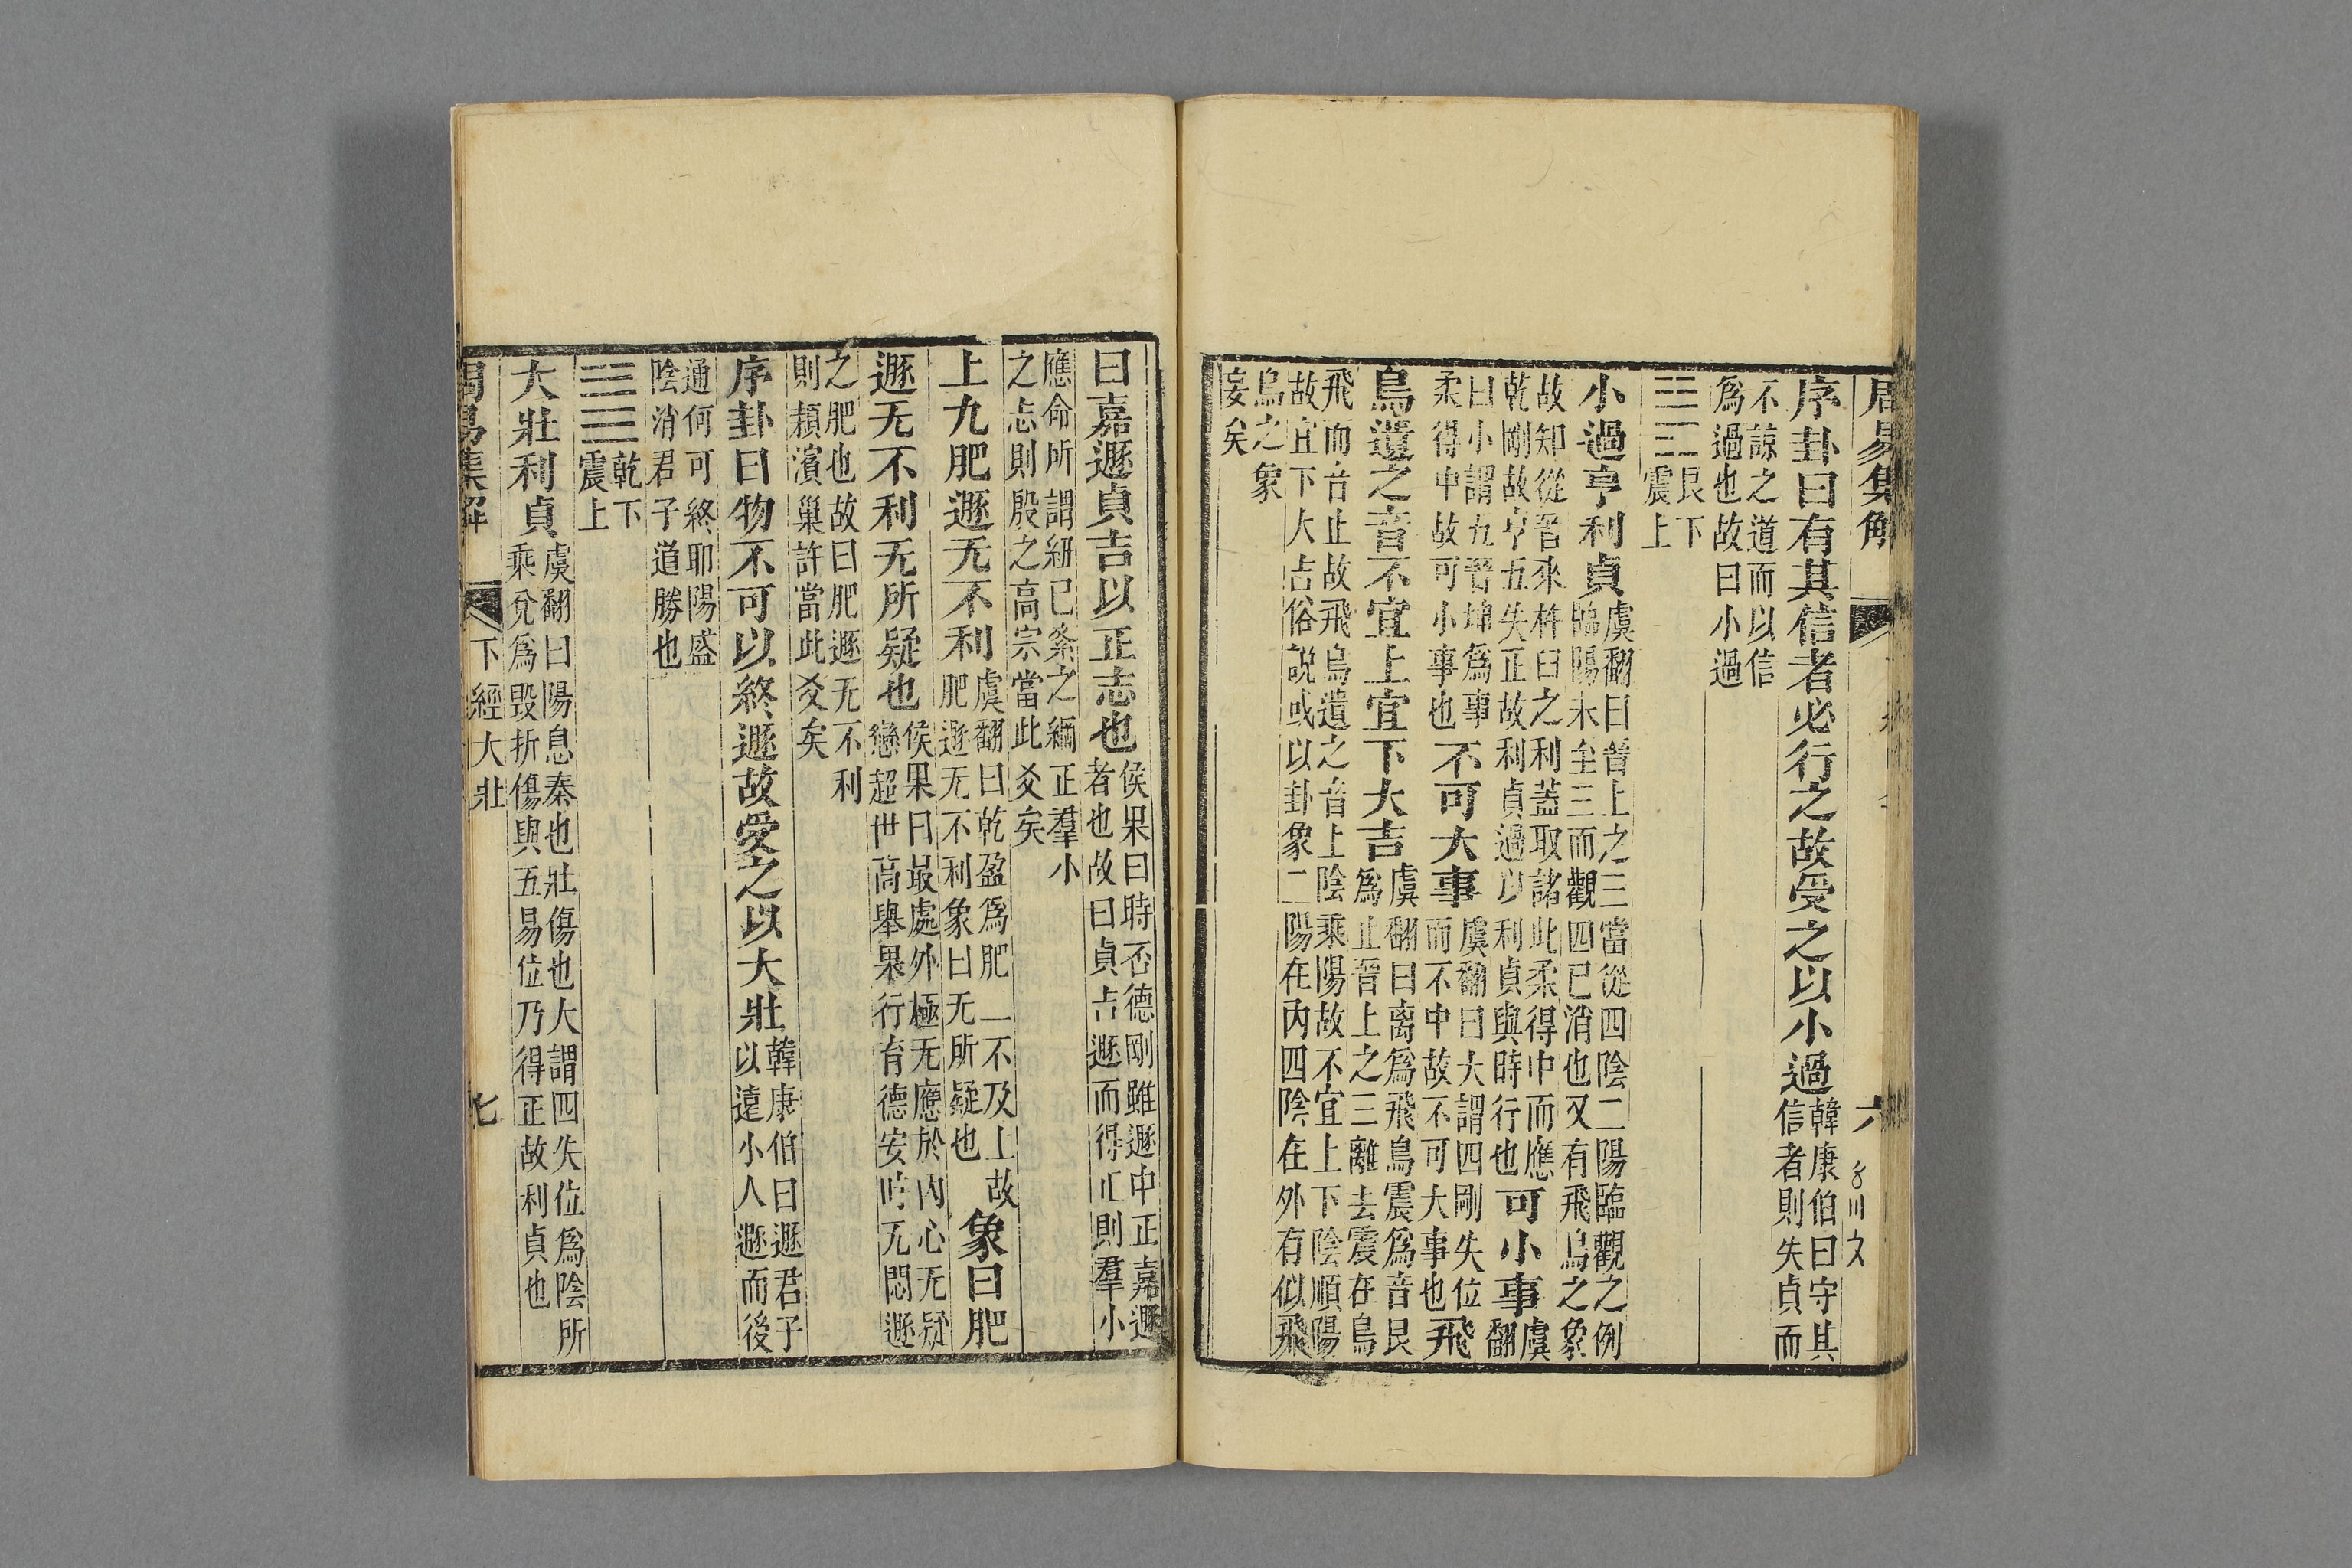 周易集解
六
序卦曰有其信者必行之故受之以小過韓康伯曰守其
信者則失貞而
不諒之道而以信
爲過也故曰小過
艮下
震上
小過亨利貞虞翻曰晉上之三當從四陰二陽臨觀之例
臨陽未至三而觀四已消也又有飛鳥之象
故知從晉來杵臼之利蓋取諸此柔得中而應
乾剛故亨五失正故利貞過以利貞與時行也可小事虞
翻
曰小謂五晉坤爲事
柔得中故可小事也不可大事虞翻曰大謂四剛失位
而不中故不可大事也飛
鳥遺之音不宜上宜下大吉虞翻曰离爲飛鳥震爲音艮
爲止晉上之三離去震在鳥
飛而音止故飛鳥遺之音上陰乘陽故不宜上下陰順陽
故宜下大吉俗說或以卦象二陽在內四陰在外有似飛
鳥之象
妄矣
曰嘉遯貞吉以正志也侯果曰時否德剛雖遯中正嘉遯
者也故曰貞吉遯而得正則羣小
應命所謂紐已紊之綱正羣小
之志則殷之高宗當此爻矣
上九肥遯无不利虞翻曰乾盈爲肥二不及上故
肥遯无不利象曰无所疑也象曰肥
遯无不利无所疑也侯果曰最處外極无應於內心无疑
戀超世高舉果行育德安時无悶遯
之肥也故曰肥遯无不利
則潁濱巢許當此爻矣
序卦曰物不可以終遯故受之以大壯韓康伯曰遯君子
以遠小人遯而後
通何可終耶陽盛
陰消君子道勝也
乾下
震上
大壯利貞虞翻曰陽息泰也壯傷也大謂四失位爲陰所
乘兌爲毀折傷與五易位乃得正故利貞也
周易集解
下經大壯
七